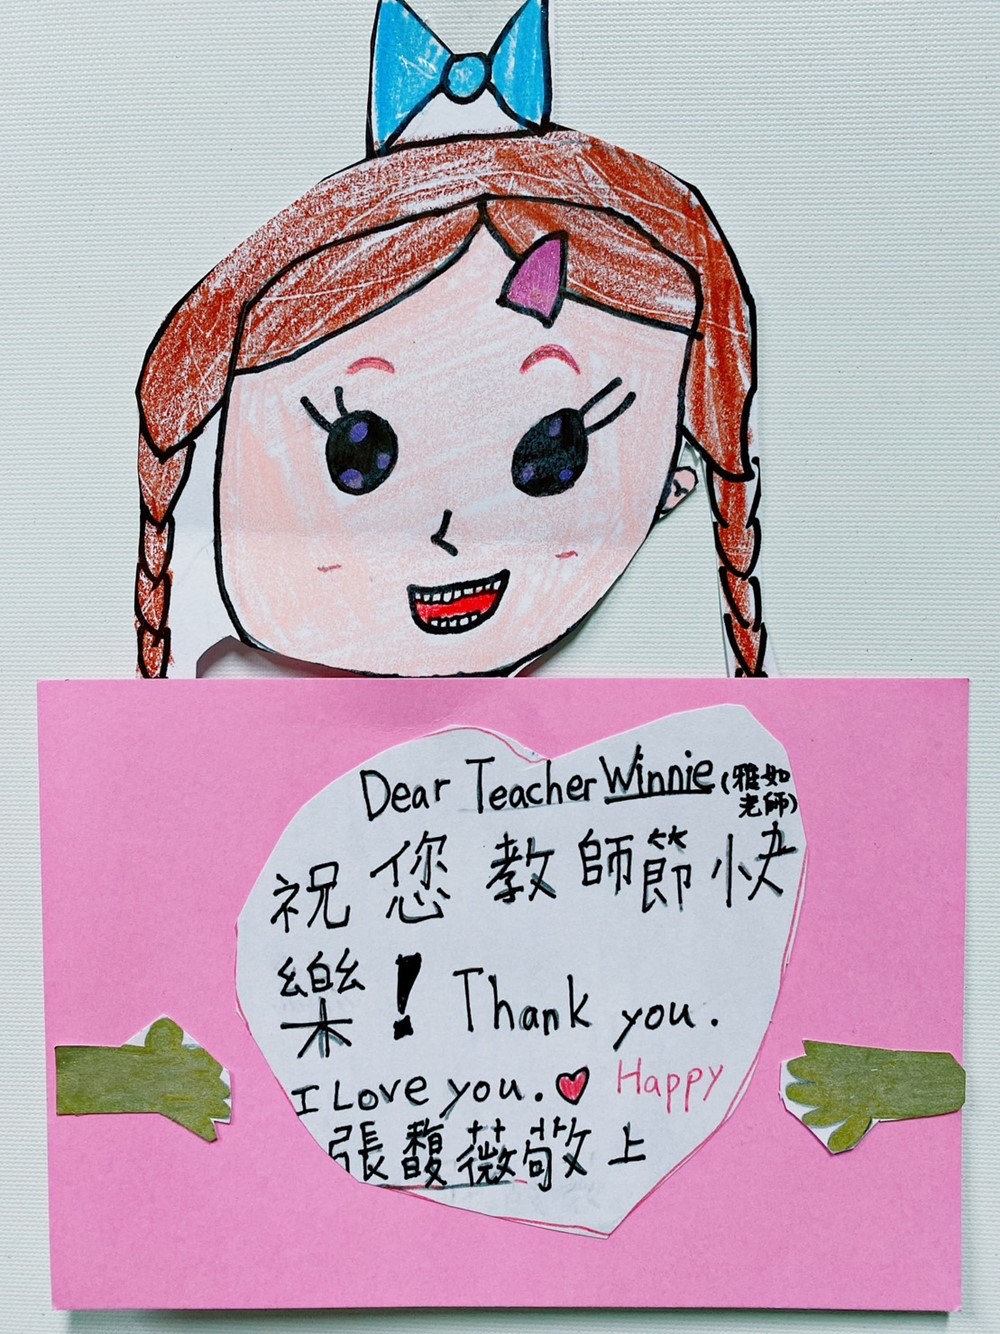 Dear Teacher Winnie (雅如
老師)
祝您教師節快
樂! Thank you.
I Love you. Happy
張馥薇敬上